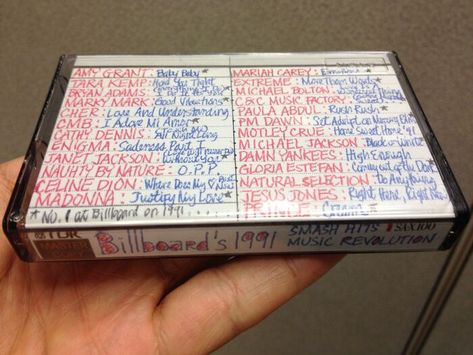 AMY GRANT: Baby Baby*
TARA KEMP: Hold You Tight
BRYAN ADAMS:
MARKY MARK: Good Vibrations*
CHER: Love And Understanding
CMB: I Adore Mi Amor*
CATHY DENNIS: All Night Long
ENIGMA: Sadeness Part I
JANET JACKSON:
NAUGHTY BY NATURE: O.P.P.
CELINE DION: Where Does My Heart Beat Now
MADONNA: Justify My Love*
*No. 1 at Billboard on 1991
MARIAH CAREY: Emotions*
EXTREME: More Than Words*
MICHAEL BOLTON:
C&C MUSIC FACTORY:
PAULA ABDUL: Rush Rush*
PM DAWN: Set Adrift on Memory Bliss*
MOTLEY CRUE: Home Sweet Home '91
MICHAEL JACKSON: Black or White*
DAMN YANKEES: High Enough
GLORIA ESTEFAN: Coming out of the Dark*
NATURAL SELECTION: Do Anything
JESUS JONES: Right Here, Right Now
PRINCE: Cream*
TDK
Billboard's 1991
SMASH HITS
MUSIC REVOLUTION
SAX100